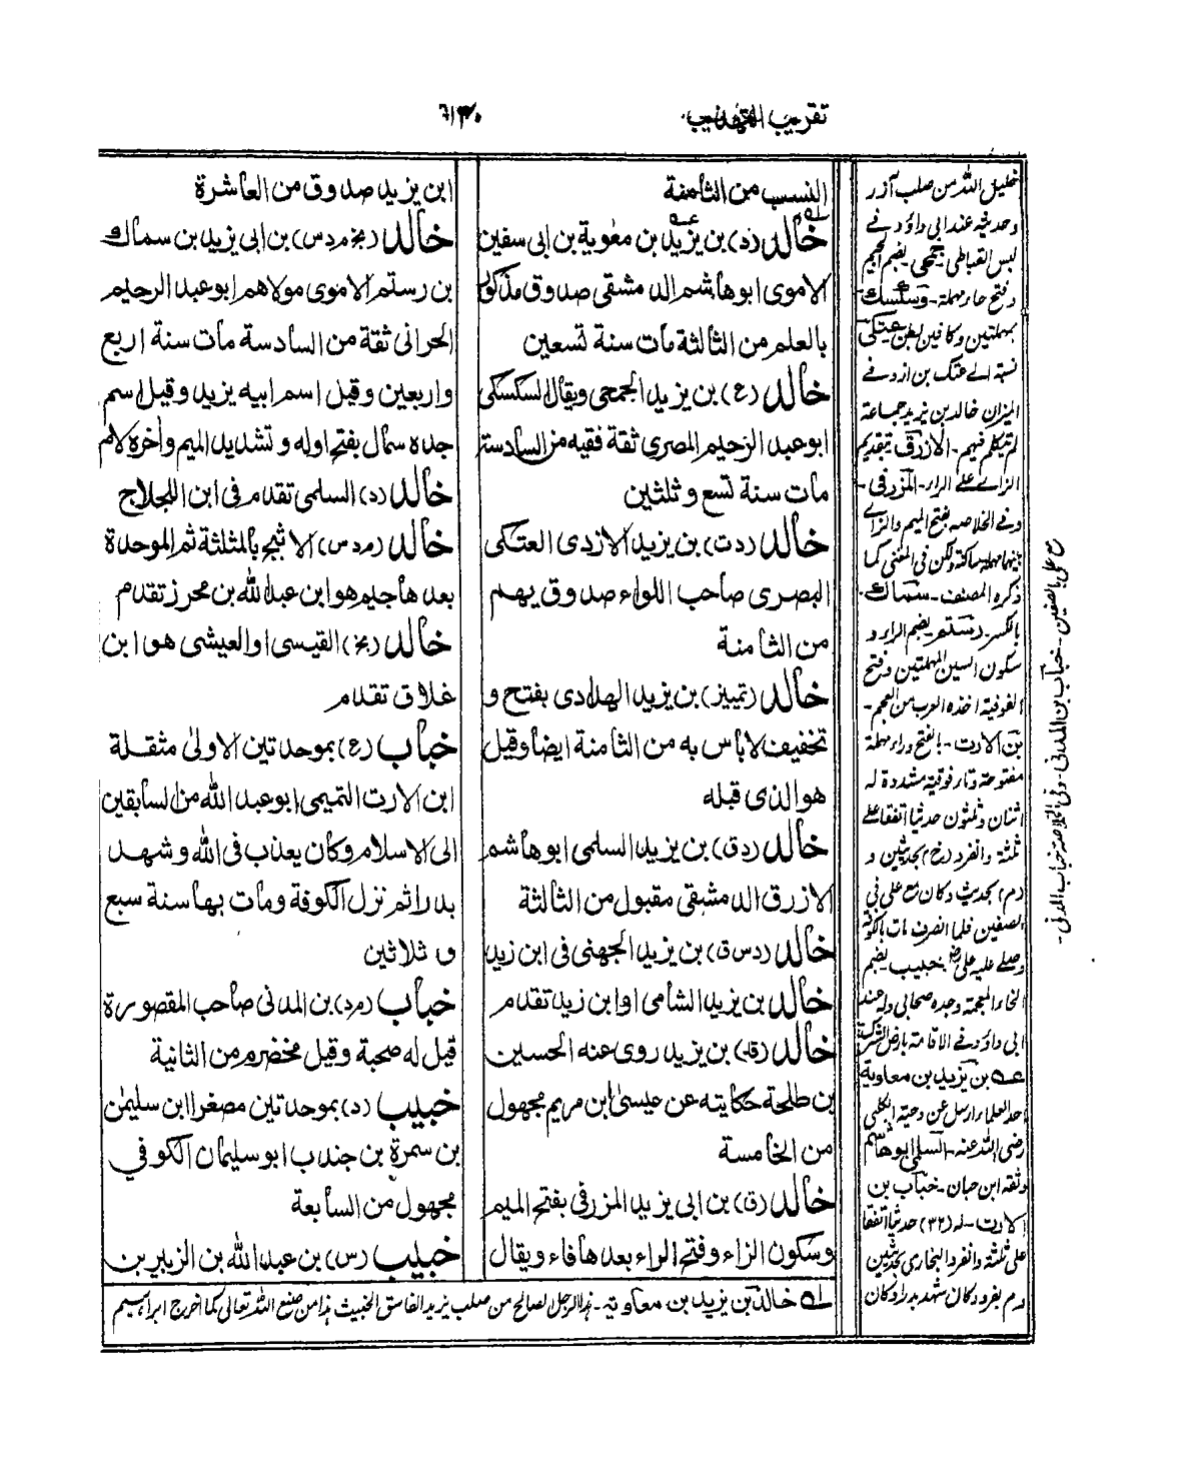 تقريب التهذيب
النسب من الثامنة
خالد (د) بن يزيد بن معوية بن ابى سفين
الاموى ابوهاشم الدمشقى صدوق مذكور
بالعلم من الثالثة مات سنة تسعين
خالد (ع) بن يزيد الجمحى ويقال السكسكى
ابوعبد الرحيم المصرى ثقة فقيه من السادسة
مات سنة تسع وثلثين
خالد (دت) بن يزيد الازدى العتكى
البصرى صاحب اللواء صدوق يهم
من الثامنة
خالد (تمييز) بن يزيد الهدادى بفتح و
تخفيف لاباس به من الثامنة ايضا وقيل
هو الذى قبله
خالد (دق) بن يزيد السلمى ابوهاشم
الازرق الدمشقى مقبول من الثالثة
خالد (دس ق) بن يزيد الجهنى فى ابن زيد
خالد بن يزيد الشامى او ابن زيد تقدم
خالد (قد) بن يزيد روى عنه الحسين
بن طلحة حكايته عن عيسىٰ ابن مريم مجهول
من الخامسة
خالد (ق) بن ابى يزيد المزرفى بفتح الميم
وسكون الزاء وفتح الراء بعدها فاء ويقال
ابن يزيد صدوق من العاشرة
خالد (بخ مد س) بن ابى يزيد بن سماك
بن رستم الاموى مولاهم ابوعبد الرحيم
الحرانى ثقة من السادسة مات سنة اربع
واربعين وقيل اسم ابيه يزيد وقيل اسم
جده سمال بفتح اوله وتشديد الميم وأخره لام
خالد (د) السلمى تقدم فى ابن اللجلاج
خالد (مد س) الاثبج بالمثلثة ثم الموحدة
بعدها جيم هو ابن عبد الله بن محرز تقدم
خالد (بخ) القيسى او العيشى هو ابن
غلاق تقدم
خباب (ع) بموحدتين الاولىٰ مثقلة
ابن الارت التميمى ابوعبد الله من السابقين
الى الاسلام وكان يعذب فى الله وشهد
بدرا ثم نزل الكوفة ومات بها سنة سبع
و ثلاثين
خباب (مد) بن المدنى صاحب المقصورة
قيل له صحبة وقيل مخضرم من الثانية
خبيب (د) بموحدتين مصغرا ابن سليمٰن
بن سمرة بن جندب ابوسليمان الكوفي
مجهول من السابعة
خبيب (س) بن عبد الله بن الزبير بن
له خالد بن يزيد بن معاوية ـ هذا الرجل لصالح من صلب يزيد الفاسق الخبيث هذا من صنع الله تعالى كما اخرج ابراهيم
خليل الله من صلب آزر
وحديثه عند ابى داؤد فے
لبس القباطى جمحى بضم الجيم
وفتح حاء مهملة ـ وسكسك
بمهملتين وكافين عتكى
نسبة الے عتك بن ازد فے
الميزان خالد بن يزيد جماعة
لم تيكلم فيهم ـ الازرق بتقديم
الزاے علے الراء ـ المزرفى ـ
وفے الخلاصه بفتح الميم والزاے
بينهما مهملة ساكنة ولكن فى المغنى كما
ذكره المصنف ـ سماك
بالكسر ـ رستم بضم الراء و
سكون السين المهملتين وفتح
الفوقية اخذه العرب من العجم ـ
بن الارت ـ بفتح وراء مهملة
مفتوحة وتاء فوقية مشددة له
اثنان وثلثون حديثا اتفقا علے
ثلثة وانفرد (خ) بحديثين و
(م) بحديث وكان مع على فى
الصفين فلما انصرف مات بالكوفة
وصلے عليه على رض خبيب بضم
الخاء المعجمة وجده صحابى وله عند
ابى داؤد فے الاقامة بارض الشرك
عه بن يزيد بن معاوية
احد العلماء ارسل عن دحية الكلبى
رضى الله عنه ـ السلمى ابوهاشم
وثقه ابن حبان ـ خباب بن
الارت ـ له (٣٢) حديثا اتفقا
على ثلثة وانفرد البخارى بحديثين
و م بفرد وكان شهد بدرا وكان
مع على بالصفين ـ خباب بن المدنى ـ وفى الخلاصة خباب المدنى ـ